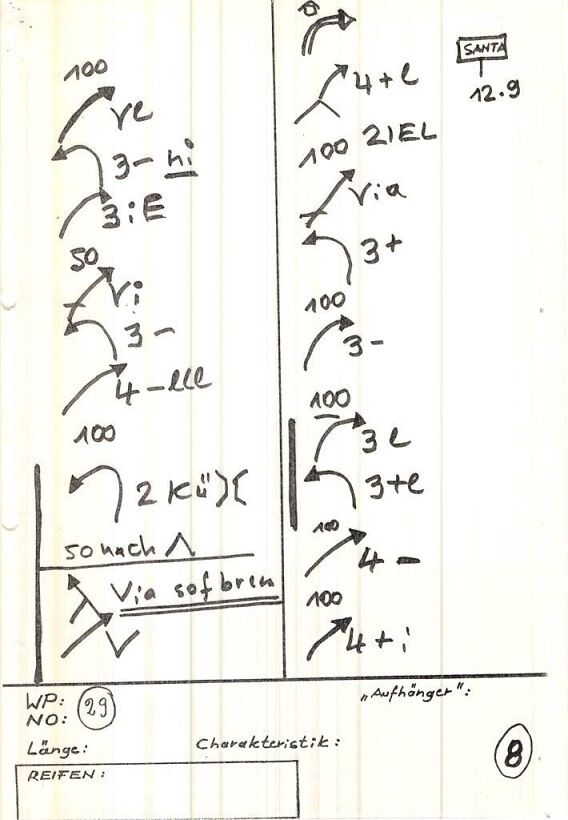 100
re
3- ni
3iE
50
Vi
3-
4-lll
100
2 Kü)(
50 nach
Via sofbrem
4+l
100 ZIEL
Via
3+
100
3-
100
3l
3+l
100
4-
100
4+i
SANTA
12.9
WP: 29
NO:
Länge:
Charakteristik:
„Aufhänger":
REIFEN:
8